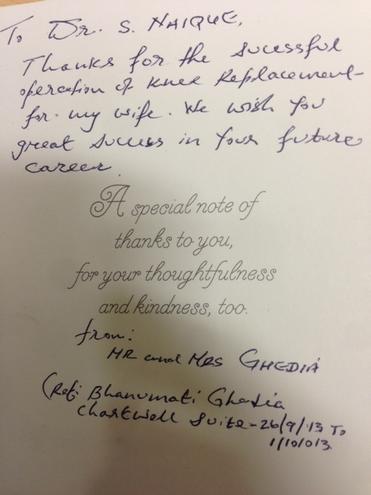 To Dr. S. NAIQUE,
Thanks for the sucessful
operation of Knee Replacement-
for my wife. We wish you
great success in your future
career
A special note of
thanks to you,
for your thoughtfulness
and kindness, too.
from:
MR and MRS GHEDIA
(Ref: Bhanumati Ghedia
Chartwell Suite - 26/9/13 To
1/10/013.